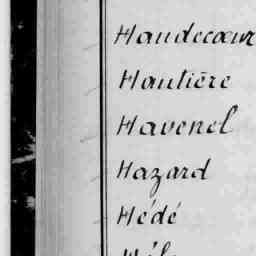 Haudecœur
Hautière
Havenel
Hazard
Hédé